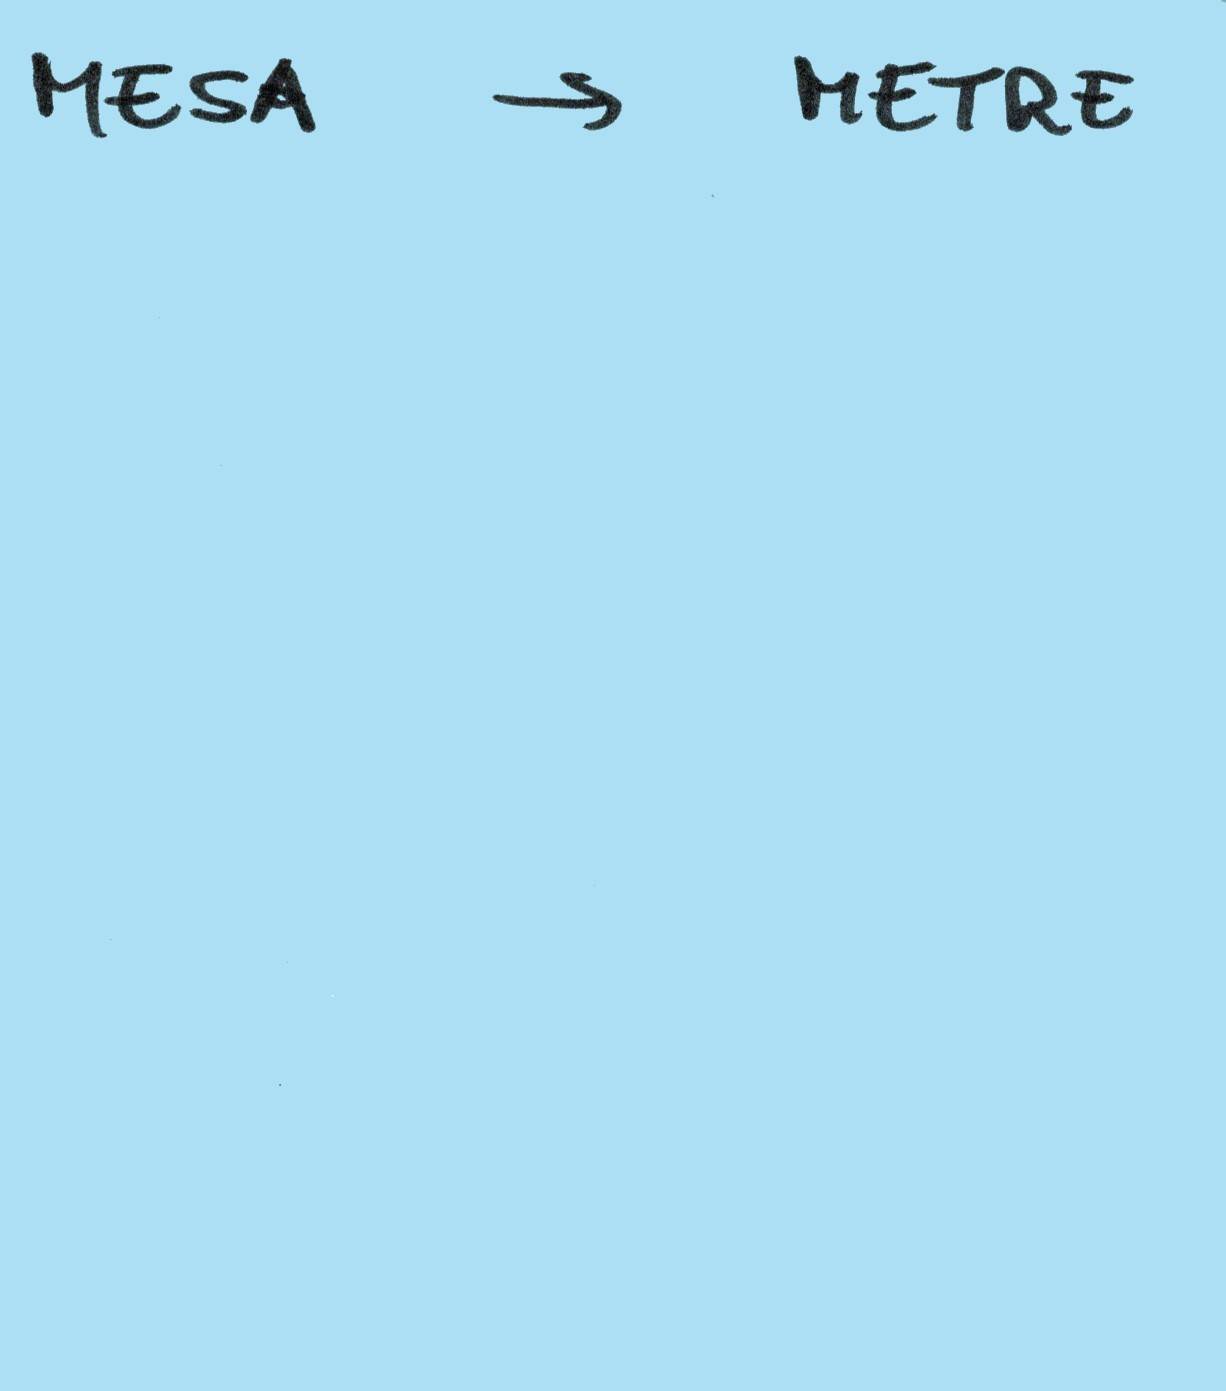 MESA → METRE